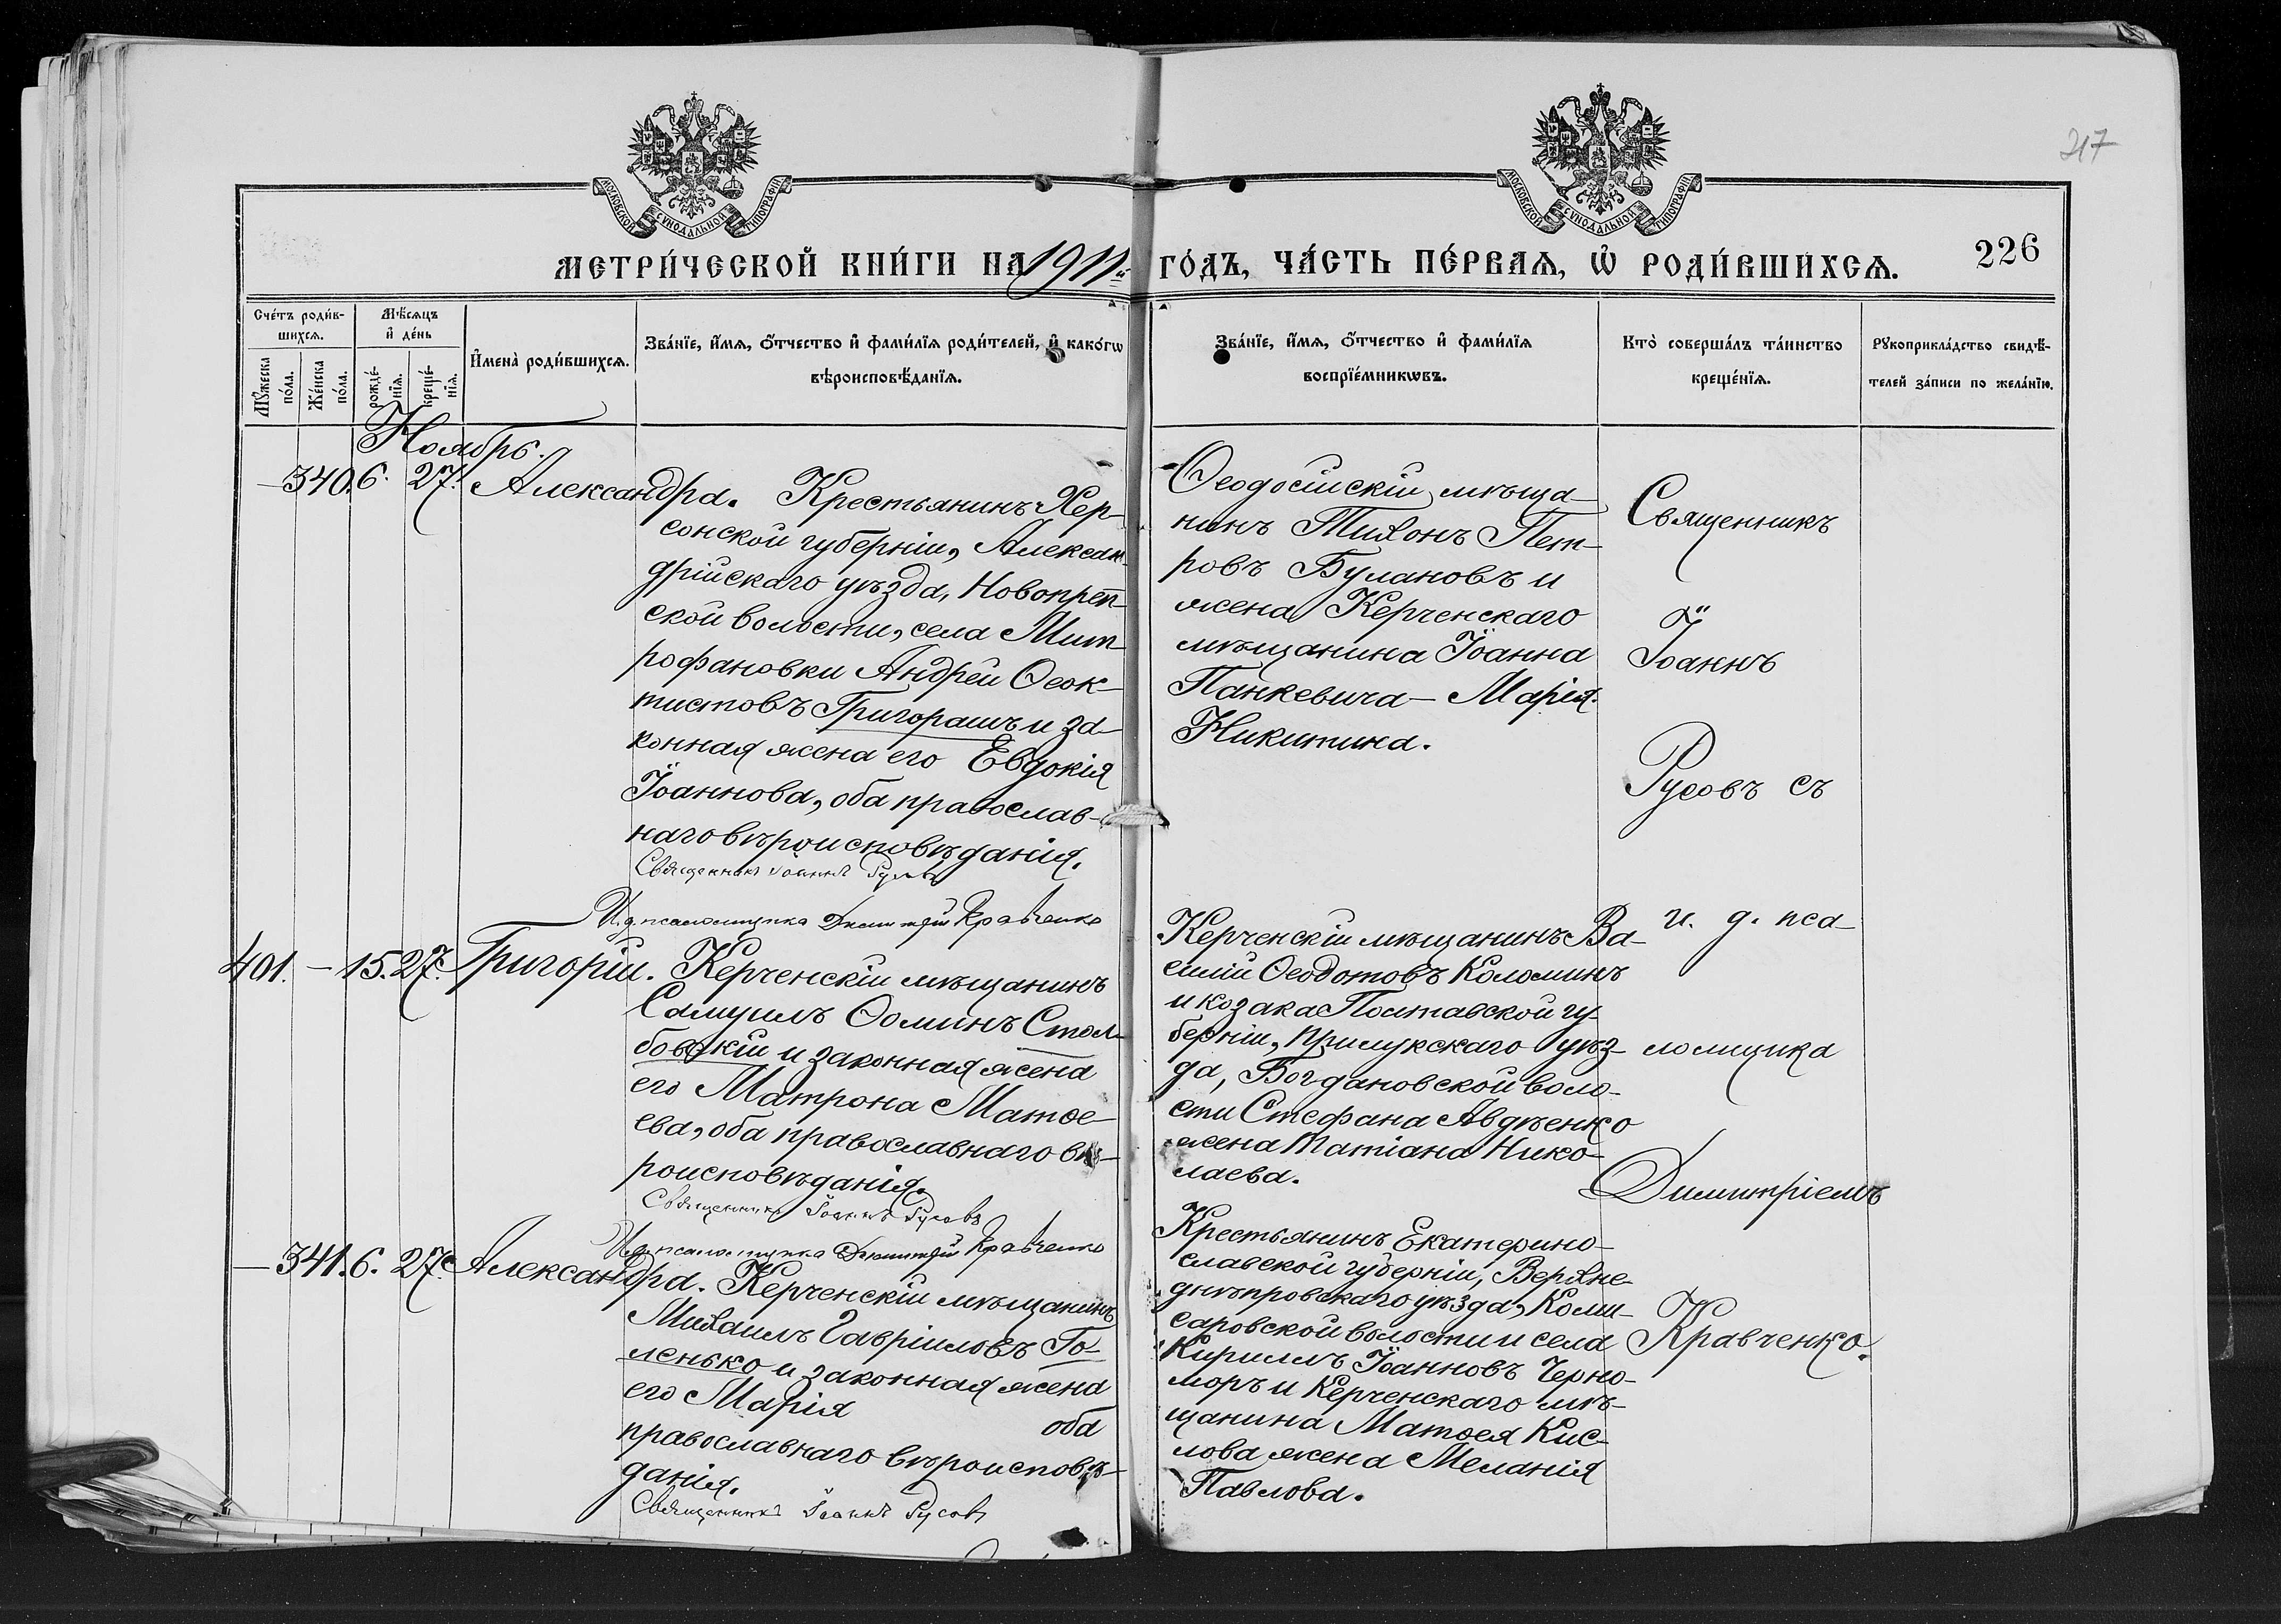 217
МОСКОВСКОЙ СѴНОДАЛЬНОЙ ТИПОГРАФІИ
МОСКОВСКОЙ СѴНОДАЛЬНОЙ ТИПОГРАФІИ
МЕТРИ́ЧЕСКОЙ КНИ́ГИ НА 1911й ГО́ДЪ, ЧА́СТЬ ПЕ́РВАѦ, Ѡ҆ РОДИ́ВШИХСѦ.
226
Сче́тъ роди́в-
шихсѧ.
Мꙋ́жеска
по́ла.
Же́нска
по́ла.
Мѣ́сѧцъ
и҆ де́нь
рожде́-
нїѧ.
креще́-
нїѧ.
И҆мена̀ роди́вшихсѧ.
Зва́нїе, и҆́мѧ, ѻ҆́тчество и҆ фами́лїѧ роди́телей, и҆ како́гѡ
вѣроисповѣ́данїѧ.
Зва́нїе, и҆́мѧ, ѻ҆́тчество и҆ фами́лїѧ
воспрїе́мникѡвъ.
Кто̀ соверша́лъ та́инство
креще́нїѧ.
Рꙋкоприкла́дство свидѣ́-
телей за́писи по жела́нїю.
Ноябрь.
— 340. 6. 27. Александра.
Крестьянинъ Хер-
сонской губерніи, Алексан-
дрійскаго уѣзда, Новопреп-
ской волости, села Мит-
рофановки Андрей Ѳеок-
тистовъ Григорашъ и за-
конная жена его Евдокія
Іоаннова, оба православ-
наго вѣроисповѣданія.
Священникъ Іоаннъ Русовъ
И. д. псаломщика Димитрій Кравченко
Ѳеодосійскій мѣща-
нинъ Тихонъ Пет-
ровъ Булановъ и
жена Керченскаго
мѣщанина Іоанна
Панкевича — Марія
Никитина.
401. — 15. 27. Григорій.
Керченскій мѣщанинъ
Самуилъ Ѳоминъ Стол-
бовскій и законная жена
его Матрона Матѳе-
ева, оба православнаго вѣ-
роисповѣданія.
Священникъ Іоаннъ Русовъ
И. д. псаломщика Димитрій Кравченко
Керченскій мѣщанинъ Ва-
силій Ѳеодотовъ Коломинъ
и козака Полтавской гу-
берніи, Прилукскаго уѣз-
да, Богдановской воло-
сти Стефана Авдѣенко
жена Татіана Нико-
лаева.
— 341. 6. 27. Александра.
Керченскій мѣщанинъ
Михаилъ Гавріиловъ Го-
ленько и законная жена
его Марія оба
православнаго вѣроисповѣ-
данія.
Священникъ Іоаннъ Русовъ
Крестьянинъ Екатерино-
славской губерніи, Верхне-
днѣпровскаго уѣзда, Коми-
саровской волости и села
Кириллъ Іоанновъ Черно-
моръ и Керченскаго мѣ-
щанина Матѳея Кис-
лова жена Меланія
Павлова.
Священникъ
Іоаннъ
Русовъ съ
и. д. пса-
ломщика
Димитріемъ
Кравченко.